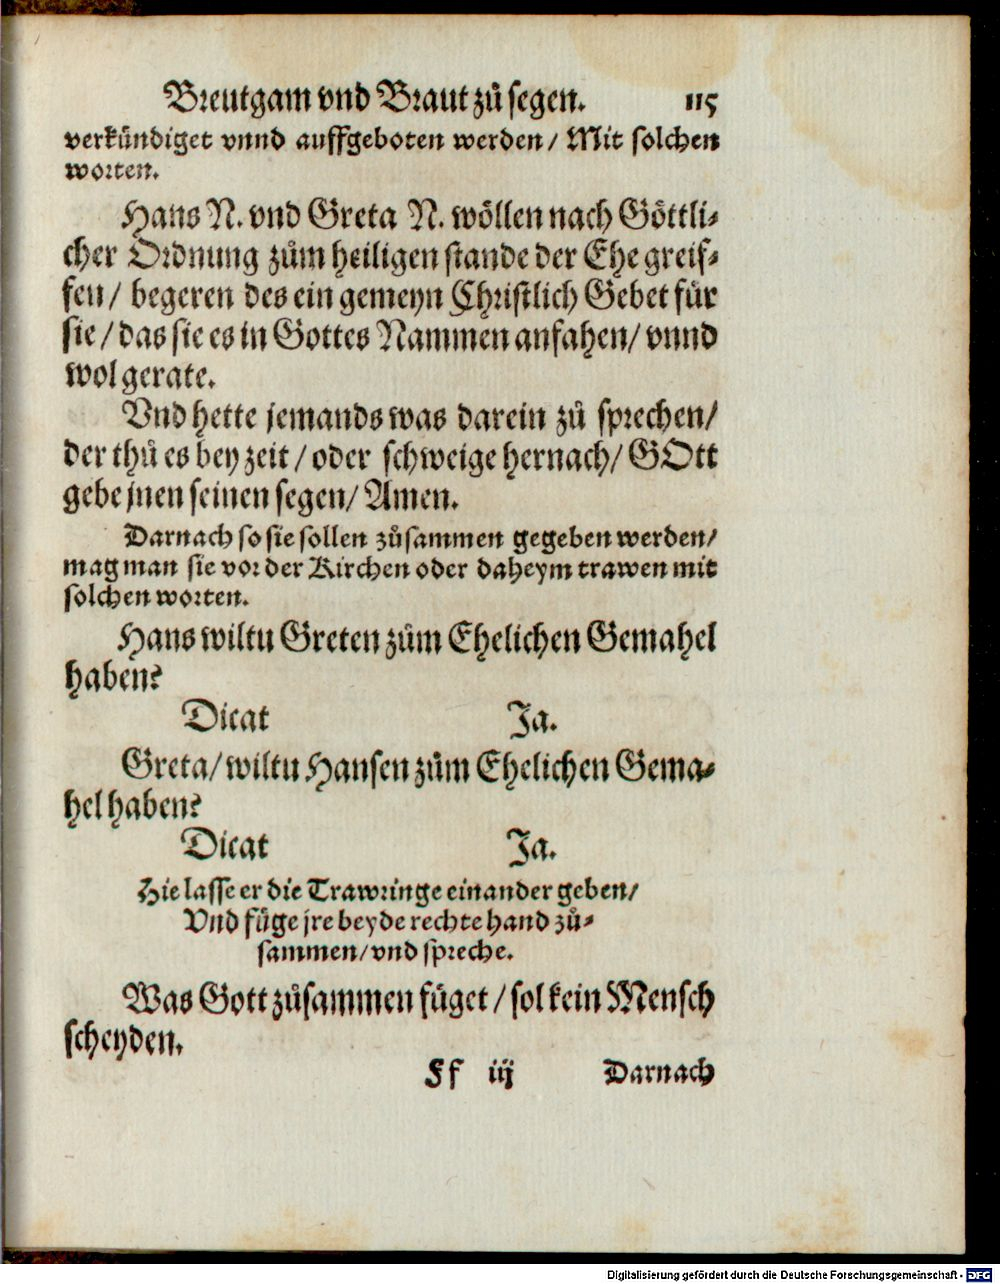 Breutgam vnd Braut zů segen. 115
verkündiget vnnd auffgeboten werden / Mit solchen
worten.
Hans N. vnd Greta N. wöllen nach Göttli-
cher Ordnung zům heiligen stande der Ehe greif-
fen / begeren des ein gemeyn Christlich Gebet für
sie / das sie es in Gottes Nammen anfahen / vnnd
wol gerate.
Vnd hette jemands was darein zů sprechen /
der thů es bey zeit / oder schweige hernach / GOtt
gebe jnen seinen segen / Amen.
Darnach so sie sollen zůsammen gegeben werden /
mag man sie vor der Kirchen oder daheym trawen mit
solchen worten.
Hans wiltu Greten zům Ehelichen Gemahel
haben?
Dicat Ja.
Greta / wiltu Hansen zům Ehelichen Gema-
hel haben?
Dicat Ja.
Hie lasse er die Trawringe einander geben /
Vnd füge jre beyde rechte hand zů-
sammen / vnd spreche.
Was Gott zůsammen füget / sol kein Mensch
scheyden.
Ff iij Darnach
Digitalisierung gefördert durch die Deutsche Forschungsgemeinschaft - DFG